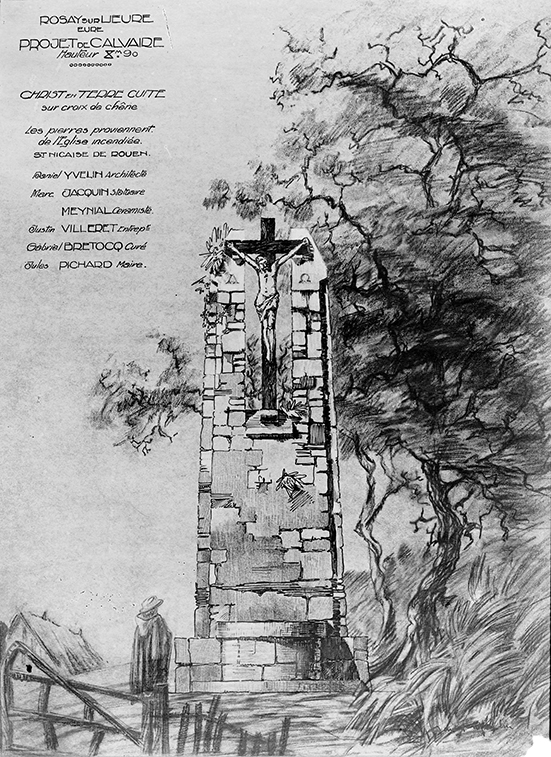 ROSAY SUR LIEURE
EURE
PROJET DE CALVAIRE
Hauteur 8m90
CHRIST EN TERRE CUITE
sur croix de chêne
Les pierres proviennent
de l'Eglise incendiée.
ST NICAISE DE ROUEN.
Daniel YVELIN Architecte
Marc JACQUIN Statuaire
MEYNIAL Céramiste.
Justin VILLERET Entrepr
Gabriel BRETOCQ Curé
Jules PICHARD Maire.
Α Ω